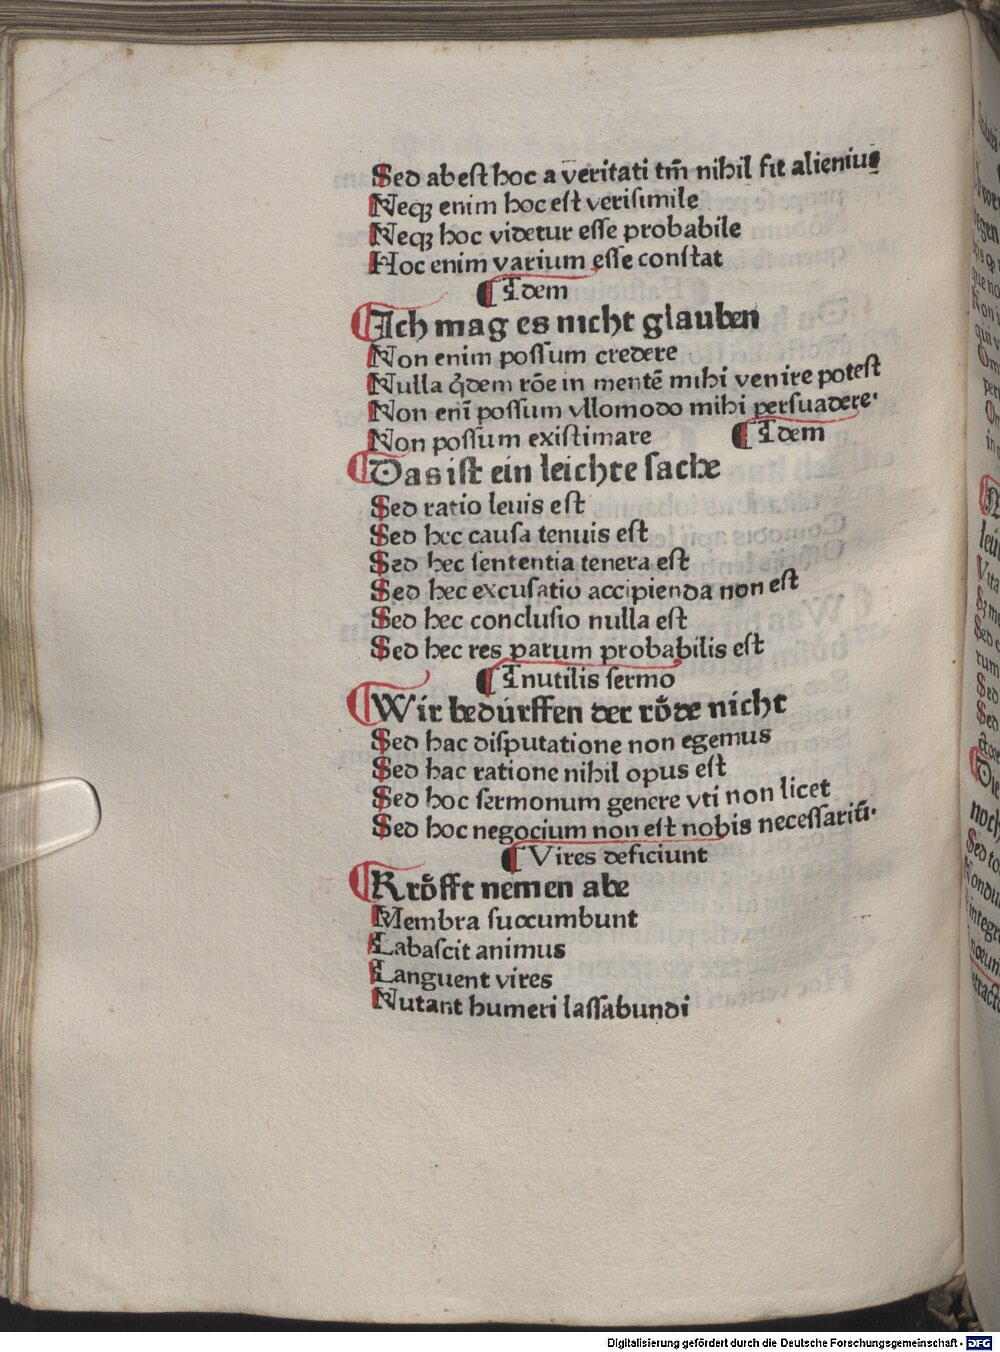 Sed abest hoc a veritati tm̄ nihil sit alienius
Neqꝫ enim hoc est verisimile
Neqꝫ hoc videtur esse probabile
Hoc enim varium esse constat
¶ Idem
¶ Ich mag es nicht glauben
Non enim possum credere
Nulla q̇dem rōe in mentē mihi venire potest
Non enī possum vllomodo mihi persuadere·
Non possum existimare ¶ Idem
¶ Das ist ein leichte sache
Sed ratio leuis est
Sed hec causa tenuis est
Sed hec sententia tenera est
Sed hec excusatio accipienda non est
Sed hec conclusio nulla est
Sed hec res parum probabilis est
¶ Inutilis sermo
¶ Wir bedurffen der roͤde nicht
Sed hac disputatione non egemus
Sed hac ratione nihil opus est
Sed hoc sermonum genere vti non licet
Sed hoc negocium non est nobis necessariū·
¶ Vires deficiunt
¶ Kroͤfft nemen abe
Membra succumbunt
Labascit animus
Languent vires
Nutant humeri lassabundi
Digitalisierung gefördert durch die Deutsche Forschungsgemeinschaft - DFG